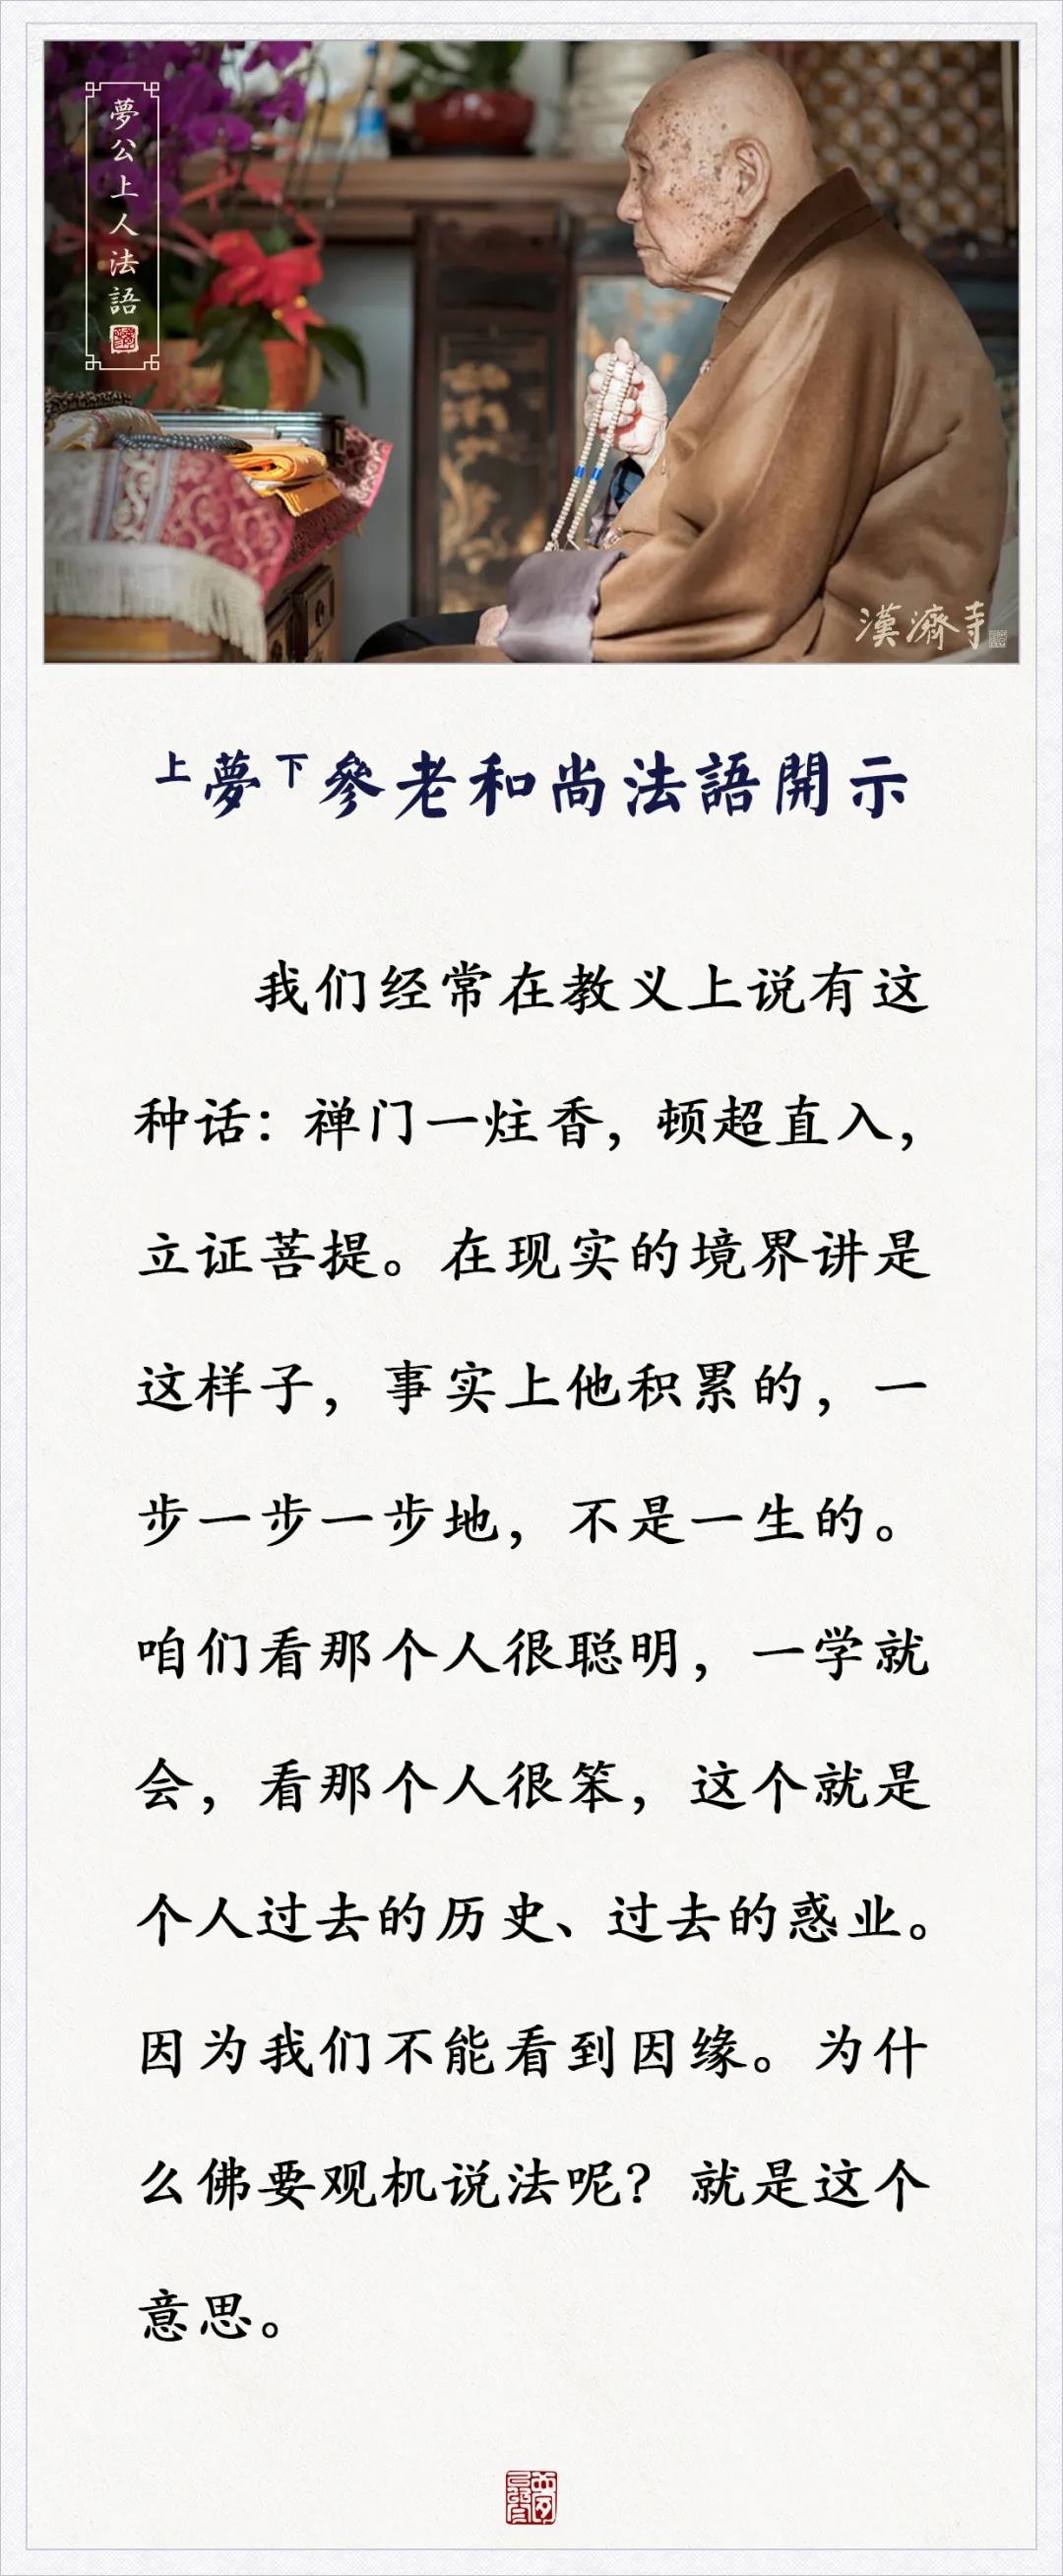 夢公上人法語
漢濟寺
上夢下參老和尚法語開示
我们经常在教义上说有这
种话：禅门一炷香，顿超直入，
立证菩提。在现实的境界讲是
这样子，事实上他积累的，一
步一步一步地，不是一生的。
咱们看那个人很聪明，一学就
会，看那个人很笨，这个就是
个人过去的历史、过去的惑业。
因为我们不能看到因缘。为什
么佛要观机说法呢？就是这个
意思。